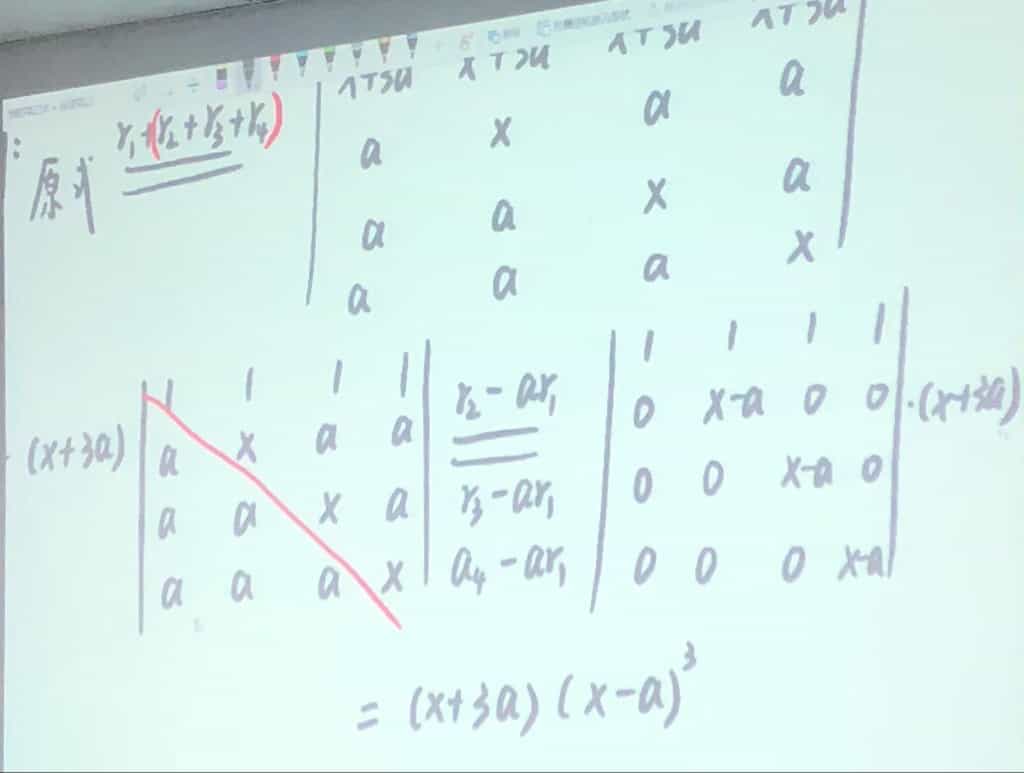 : 原式 r₁+(r₂+r₃+r₄)
x+3a x+3a x+3a x+3a
a x a a
a a x a
a a a x
(x+3a)
1 1 1 1
a x a a
a a x a
a a a x
r₂-ar₁
r₃-ar₁
a₄-ar₁
1 1 1 1
0 x-a 0 0
0 0 x-a 0
0 0 0 x-a
·(x+3a)
= (x+3a)(x-a)³